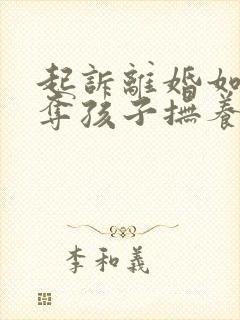 起訴離婚如
奪孩子撫養
李和義